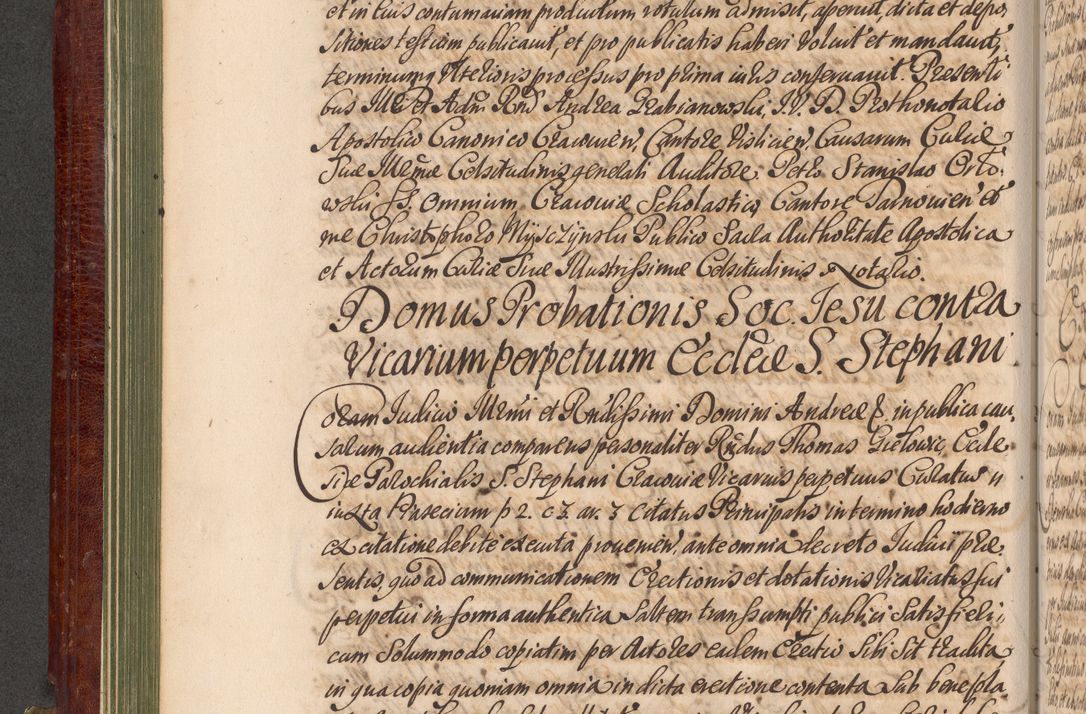 et in eius contumaciam productum rotulum admisit, aperuit, dicta et depo,
sitiones testium publicauit, et pro publicatis haberi voluit et mandauit,
terminumq ulterioris processus pro prima iuris conseruauit. Presenti
bus Illri et Adm Rndo Andrea Grabianowski, I. V. D. Prothonotario
Apostolico Canonico Cracouien, Cantore Vislicien, Causarum Curiæ
Suæ Illmæ Celsitudinis generali Auditore, Petro Stanislao Orło,
wski SS. Omnium Cracouiæ Scholastico Cantore Tarnouien et
me Christophoro Myszczynski Publico Sacra Authoritate Apostolica
et Actorum Curiæ Suæ Illustrissimæ Celsitudinis Notario.
Domus Probationis Soc. Iesu contra
Vicarium perpetuum Eccleæ S. Stephani
Coram Iudicio Illmi et Rndissimi Domini Andreæ &. in publica cau
sarum audientia comparens personaliter Rndus Thomas Gietowic, Eccle
siæ Parochialis S. Stephani Cracouiæ Vicarius perpetuus Curatus
iuxta Praseciam p 2. c 3. ar. 3 citatus Principalis in termino hodierno
ex citatione debite executa prouenien, ante omnia decreto Iudicii præ
sentis, quo ad communicationem Erectionis et dotationis Vicariatus sui
perpetui in forma authentica saltem transsumpti publici satisfieri,
cum solummodo copiatim per Actores eadem Erectio sibi sit tradita
in qua copia quoniam omnia in dicta erectione contenta sub benepla